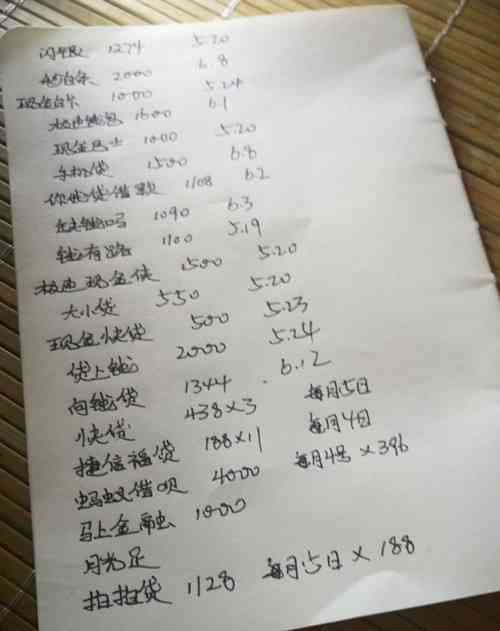 1274 5.20
2000 6.8
现金白卡 1000 5.24
1600 6.1
现金巴士 1000 5.20
手机贷 1500 6.8
你我贷借款 1108 6.2
1090 6.3
钱有路 1100 5.19
现金侠 1500 5.20
大小贷 550 5.20
现金快贷 500 5.23
贷上钱 2000 5.24
向钱贷 1344 6.12
快贷 438×3 每月5日
捷信福贷 188×11 每月4日
蚂蚁借呗 4000 每月4号×396
马上金融 1000
月光足
拍拍贷 1128 每月15日×188